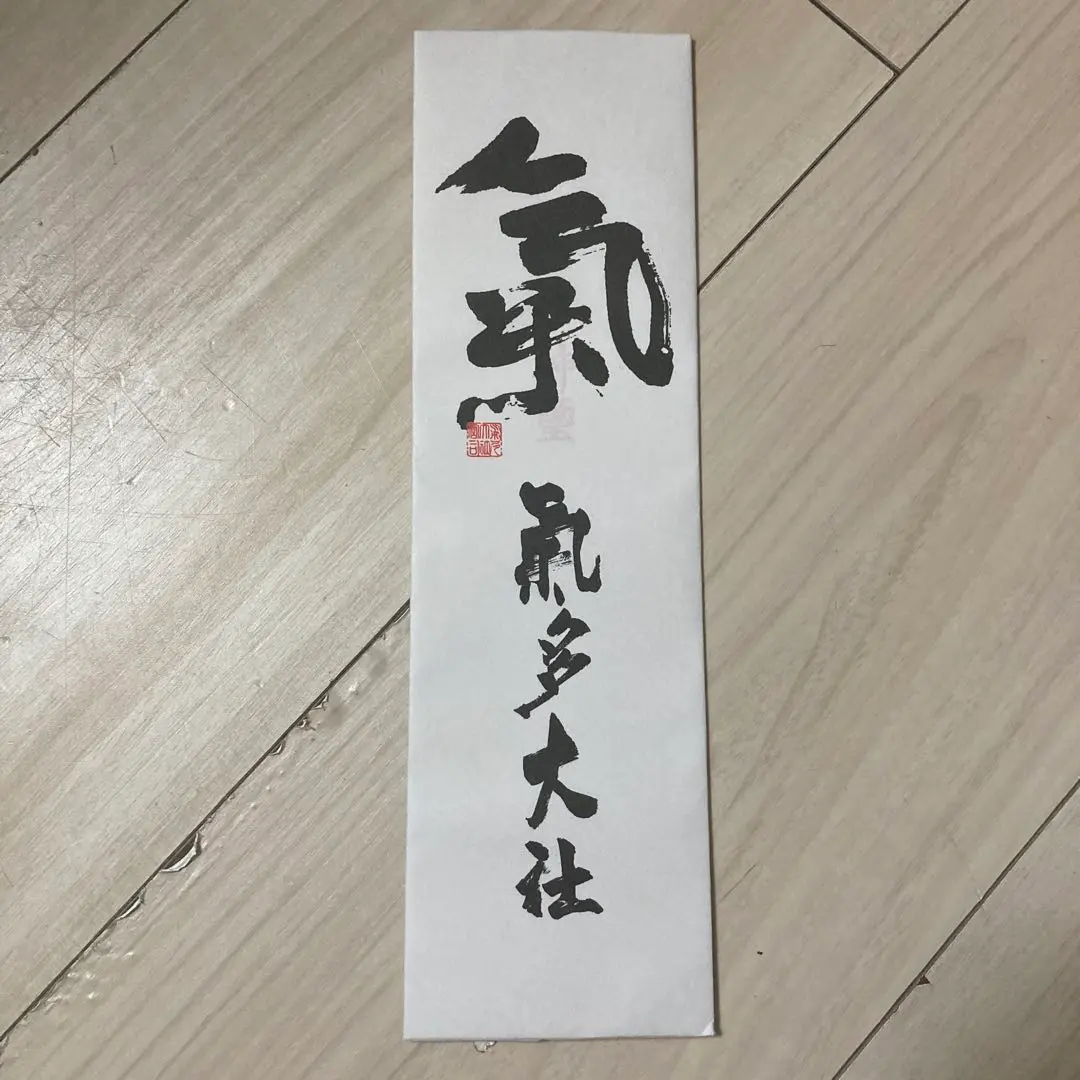 氣
氣多大社